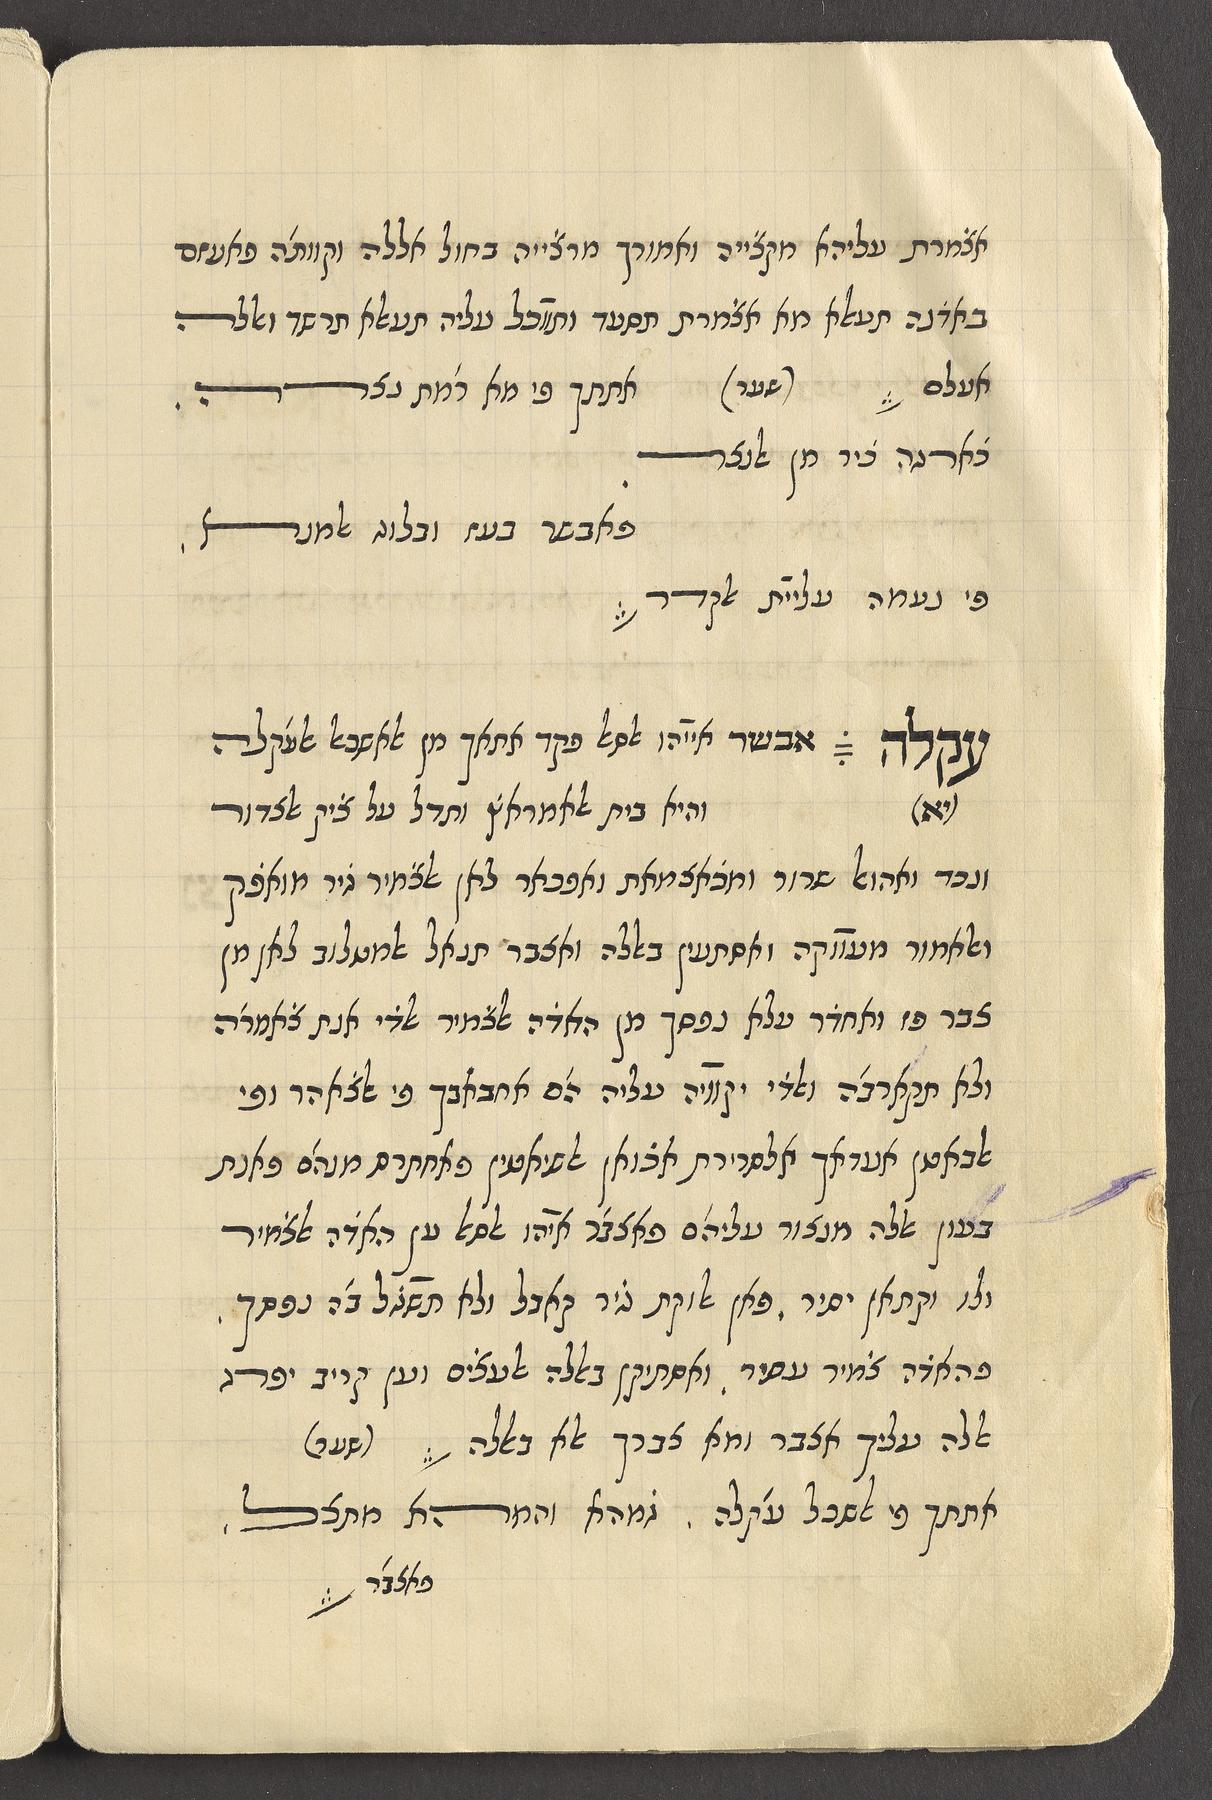 אצ֗מרת עליהא מקצ֗ייה ואמורך מרצ֗ייה בחול אללה וקוותה פאעזם
באד֗נה תעאלא מא אצ֗מרת תסעד ותווכל עליה תעאלא תרשד ואללה
אעלם (שער) אתתך פי מא רמת נצרה .
כ֗ארגה כ֗יר מן אלנצר .
פאבשר בעז ובלוג אלמנא .
פי נעמה עליית אלקדר
עקלה אבשר אייהו אלסאל פקד אתאך מן אלאשכאל אלע֗קלה
(יא) והיא בית אלאמראץ֗ ותדל על צ֗יק אלצדור
ונכד ואהואל שרור ומכ֗אצמאת ואפכאר לאן אלצ֗מיר ג֗יר מואפק
ואלאמור מעווקה ואסתעין באללה ואצבר תנאל אלמטלוב לאן מן
צבר פז ואחד֗ר עלא נפסך מן האד֗ה אלצ֗מיר אלד֗י אנת צ֗אמרה
ולא תקארבה ואלד֗י יקוויה עליה הם אחבאבך פי אלצ֗אהר ופי
אלבאטן אעדאך אלסרירת אכ֗ואן אלשיאטין פאחתרס מנהם פאנת
בעון אללה מנצור עליהם פאצבר אייהו אלסאל ען האד֗ה אלצ֗מיר
ולו וקתאן יסיר . פאן אלוקת ג֗יר קאבל ולא תשג֗ל בה נפסך .
פהאד֗ה צ֗מיר עסיר . ואסתיקן באללה אלעצ֗ים וען קריב יפרג
אללה עליך אצבר ומא צברך אלא באללה (שער)
אתתך פי אלשכל ע֗קלה . ג֗מהא והמהא מתצל .
פאצבר